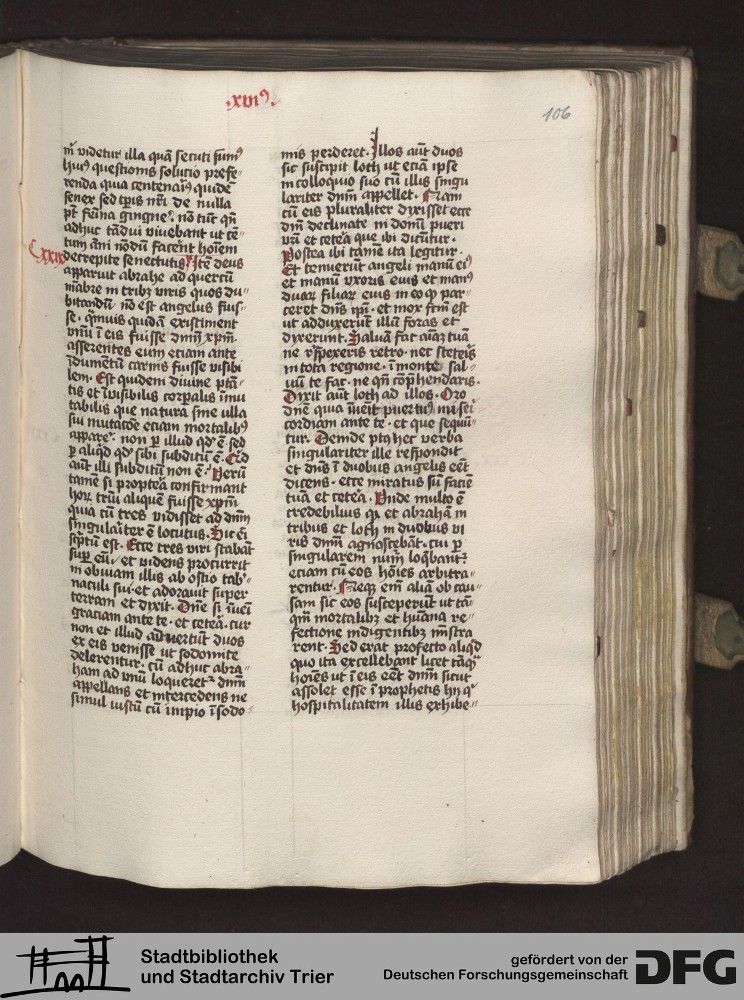 .xvi⁹.
106
m̄ videtur illa quā secuti sum⁹
hui⁹ questionis solutio prefe⸗
renda quia centenari⁹ quidē
senex sed tp̄is nr̄i de nulla
pt̄ femīa gingne͛. nō tūt qn̄
adhuc tādui viuebant ut cē⸗
tum āni nōdū facer̄nt hoīem
xxix decrepite senectutis Itē deus
apparuit abrahe ad quercū
mābre in tribz viris quos du⸗
bitandū nō est angelus fuis⸗
se. qͣmuis quidā existiment
vnū ī eis fuisse dnm̄ xpm̄.
asserentes eum eciam ante
īdumētū carnis fuisse visibi
lem. Est quidem diuine ptā⸗
tis et īvisibilis corpalis īmu
tabilis que natura sine ulla
sui mutacōe eciam mortalib⁹
appare͛. non ꝑ illud qd̓ ē sed
ꝑ aliqd̓ qd̓ sibi subditū ē. Qͥd
aūt illi subditū non ē. Verū
tamē si propteͣa confirmant
hoꝝ triū aliquē fuisse xpm̄
quia cū tres vidisset ad dnm̄
singulariter ē locutus. Sic eī
sc̓ptū est. Ecce tres viri stabāt
sup̱ eū. et videns procurrit
in obuiam illis ab ostio tab̓⸗
naculi sui. et adorauit super
terram et dixit. Dn̄e si īueī
graciam ante te. et ceteͣ. cur
non et illud aduertūt duos
ex eis venisse ut sodomite
delerentur. cū adhuc abra⸗
ham ad vnū loqueret᷑ dnm̄
appellans et intercedens ne
simul iustū cū impio ī sodo⸗
mis perderet. Illos aūt duos
sic suscipit loth ut eciā ipse
in colloquio suo cū illis singu
lariter dnm̄ appellet. Nam
cū eis pluraliter dixisset ecce
dn̄i declinate in domū pueri
vr̄i et ceteͣa que ibi dicūtur.
Postea ibi tamē ita legitur.
Et tenuerūt angeli manū ei⁹
et manū vxoris eius et man⁹
duaꝝ filiaꝝ eius in eo qͩ par⸗
ceret dn̄s ip̄i. et mox ftm̄ est
ut adduxerūt illū foras et
dixerunt. Saluā fac aīaꝫ tuā
ne r̓spexeris retro. nec steteris
in tota regione. ī monte sal⸗
uū te fac. ne qn̄ cōp̱hendaris.
Dixit aūt loth ad illos. Oro
dn̄e quia īueit puer tu⁹ misei⸗
cordiam ante te. et que sequū⸗
tur. Deinde pꝰ hec verba
singulariter ille respondit
et dn̄s ī duobus angelis eēt
dicens. ecce miratus sū faciē
tuā et ceteͣa. Vnde multo ē
credebilius qͩ et abrahā in
tribus et loth in duobus vi
ris dnm̄ agnoscebāt. cui ꝑ
singularem num̄ loq̄bant᷑.
eciam cū eos hoīes arbitra⸗
rentur. Neqꝫ em̄ aliā ob cau⸗
sam sic eos susceperūt ut tā⸗
qͣm mortalibꝫ et hūana re⸗
fectione indigentibꝫ mīstra
rent. Sed erat profecto aliqͥd
quo ita excellebant licet tāqͣ
hoīes ut ī eis eēt dnm̄ sicut
assolet esse ī prophetis hij qͥ
hospitalitatem illis exhibe⸗
Stadtbibliothek
und Stadtarchiv Trier
gefördert von der
Deutschen Forschungsgemeinschaft
DFG